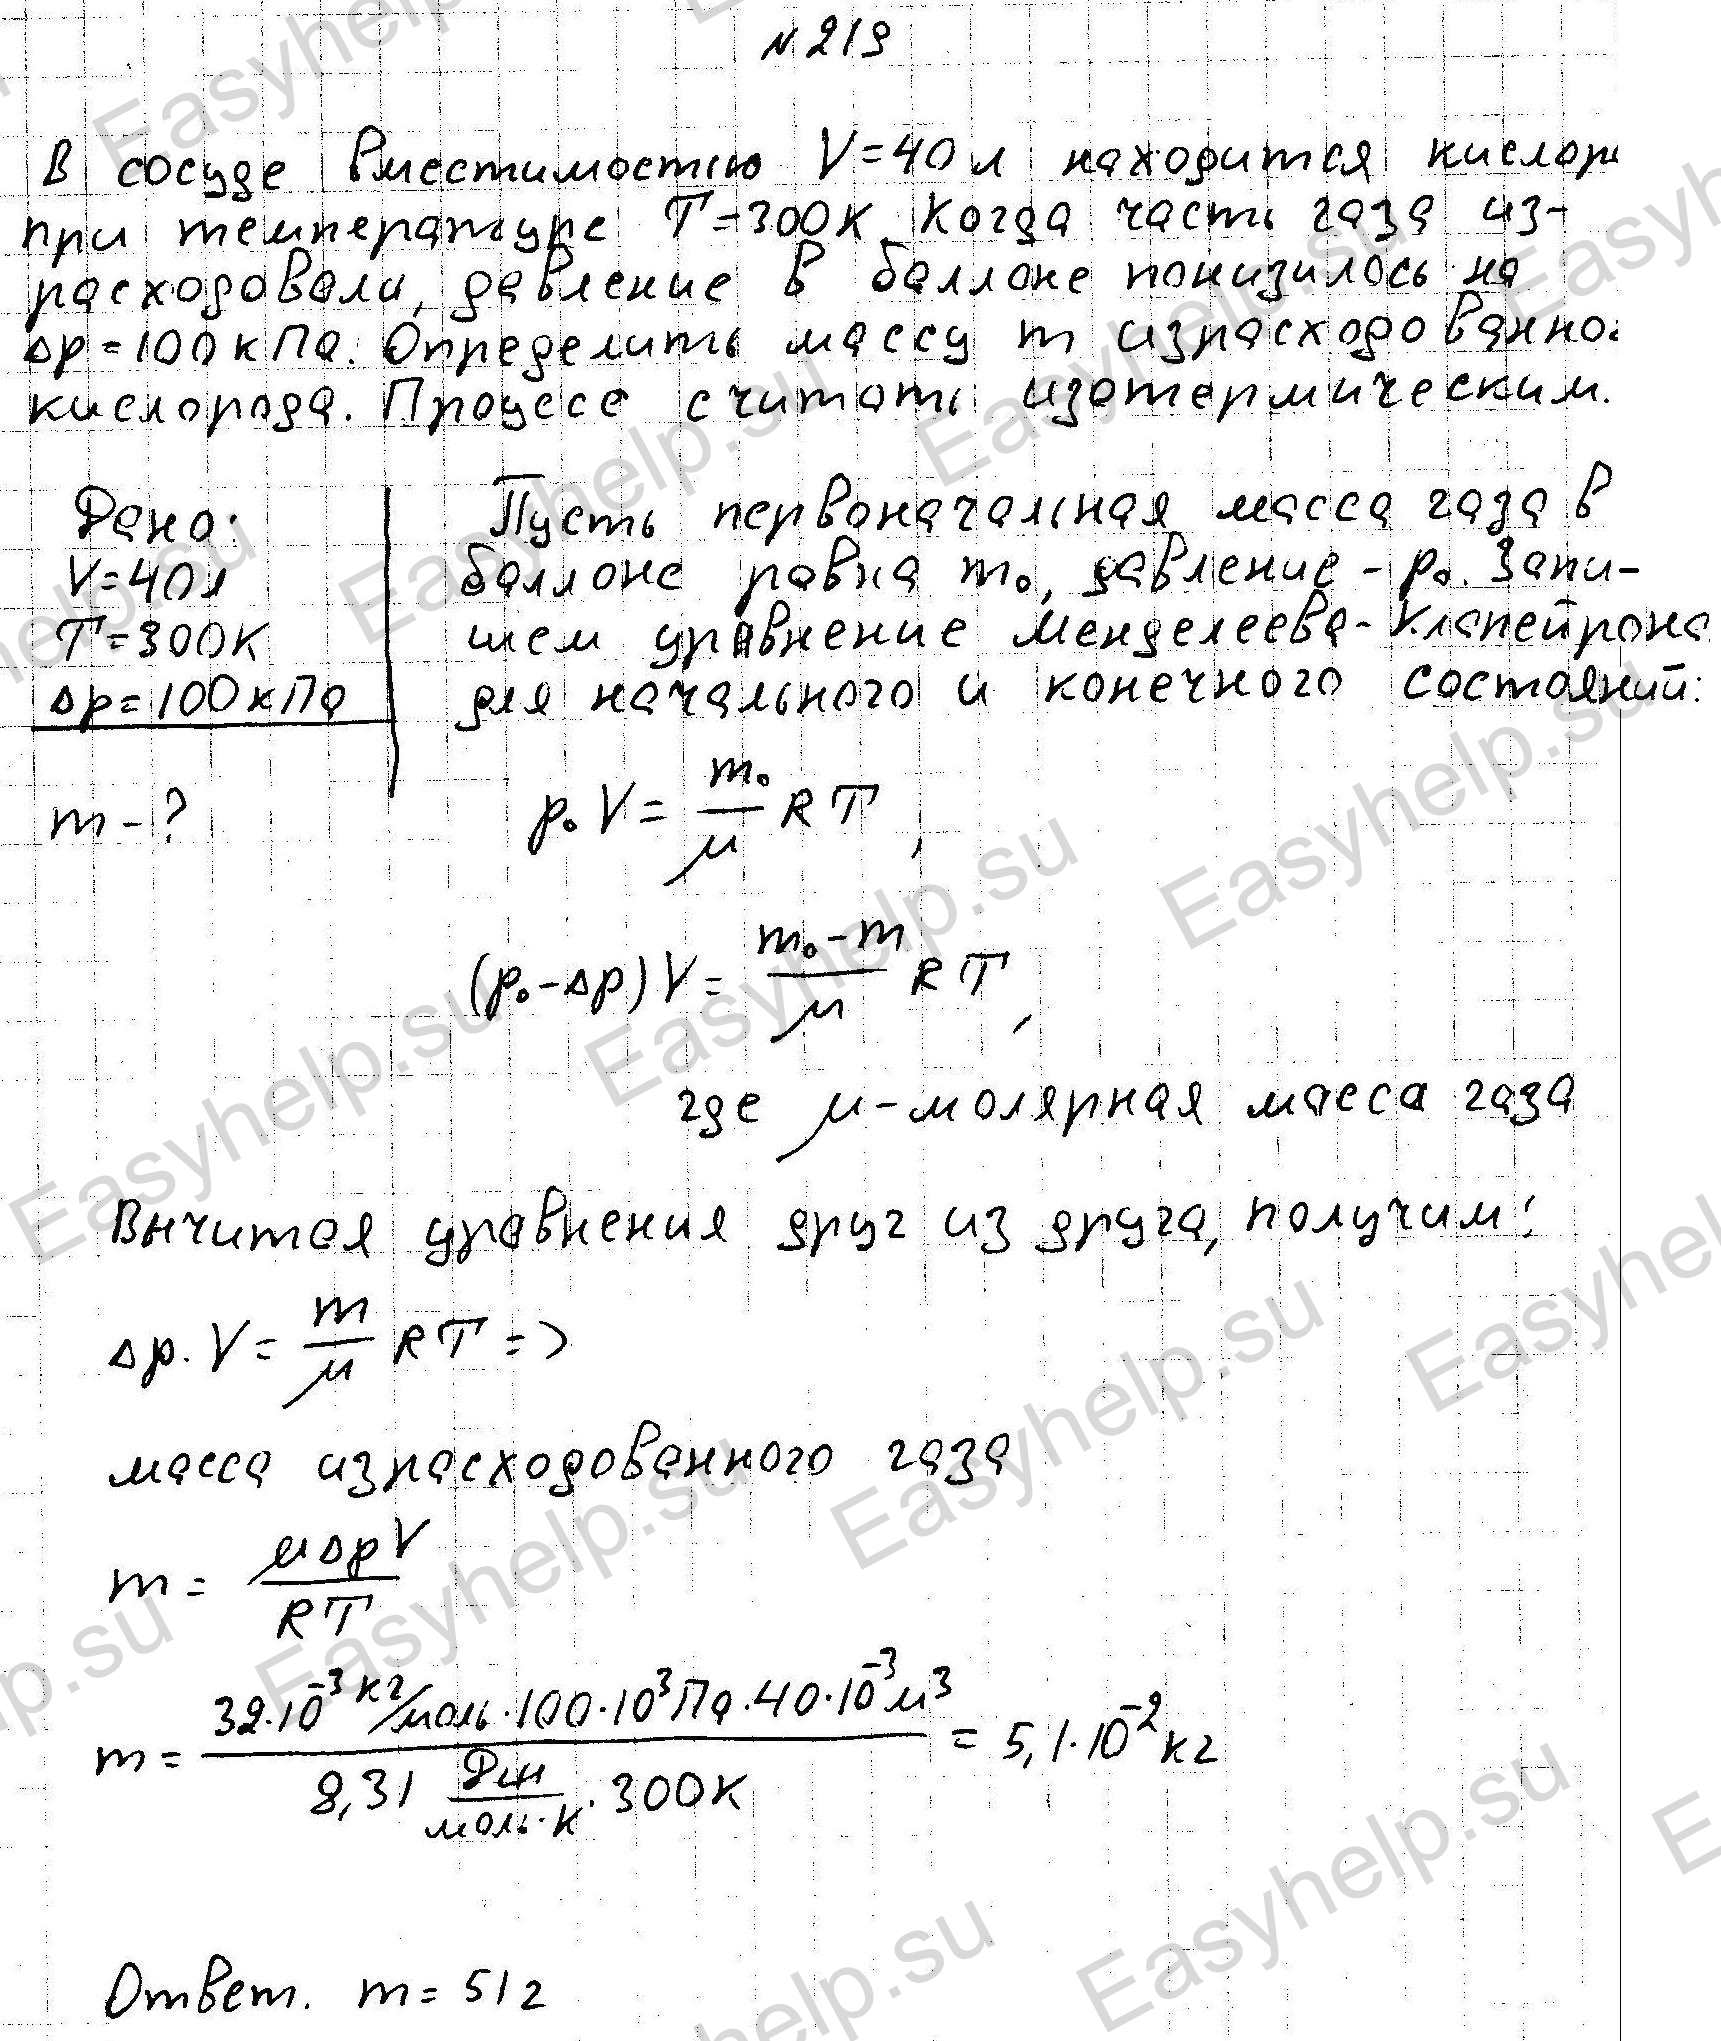 N 219
В сосуде вместимостью V=40 л находится кислор
при температуре T=300K. Когда часть газа из-
расходовали, давление в баллоне понизилось на
Δp=100 кПа. Определить массу m израсходованно
кислорода. Процесс считать изотермическим.
Дано:
V=40л
T=300K
Δp=100кПа
m-?
Пусть первоначальная масса газа в
баллоне равна m₀, давление - p₀. Запи-
шем уравнение Менделеева-Клапейрона
для начального и конечного состояний:
p₀V = m₀/μ RT,
(p₀-Δp)V = (m₀-m)/μ RT,
где μ-молярная масса газа
Вычитая уравнения друг из друга, получим:
Δp·V = m/μ RT =>
масса израсходованного газа
m = μΔpV/RT
m = (32·10⁻³ кг/моль·100·10³Па·40·10⁻³м³)/(8,31 Дж/(моль·К)·300К) = 5,1·10⁻² кг
Ответ. m = 51 г
Easyhelp.su